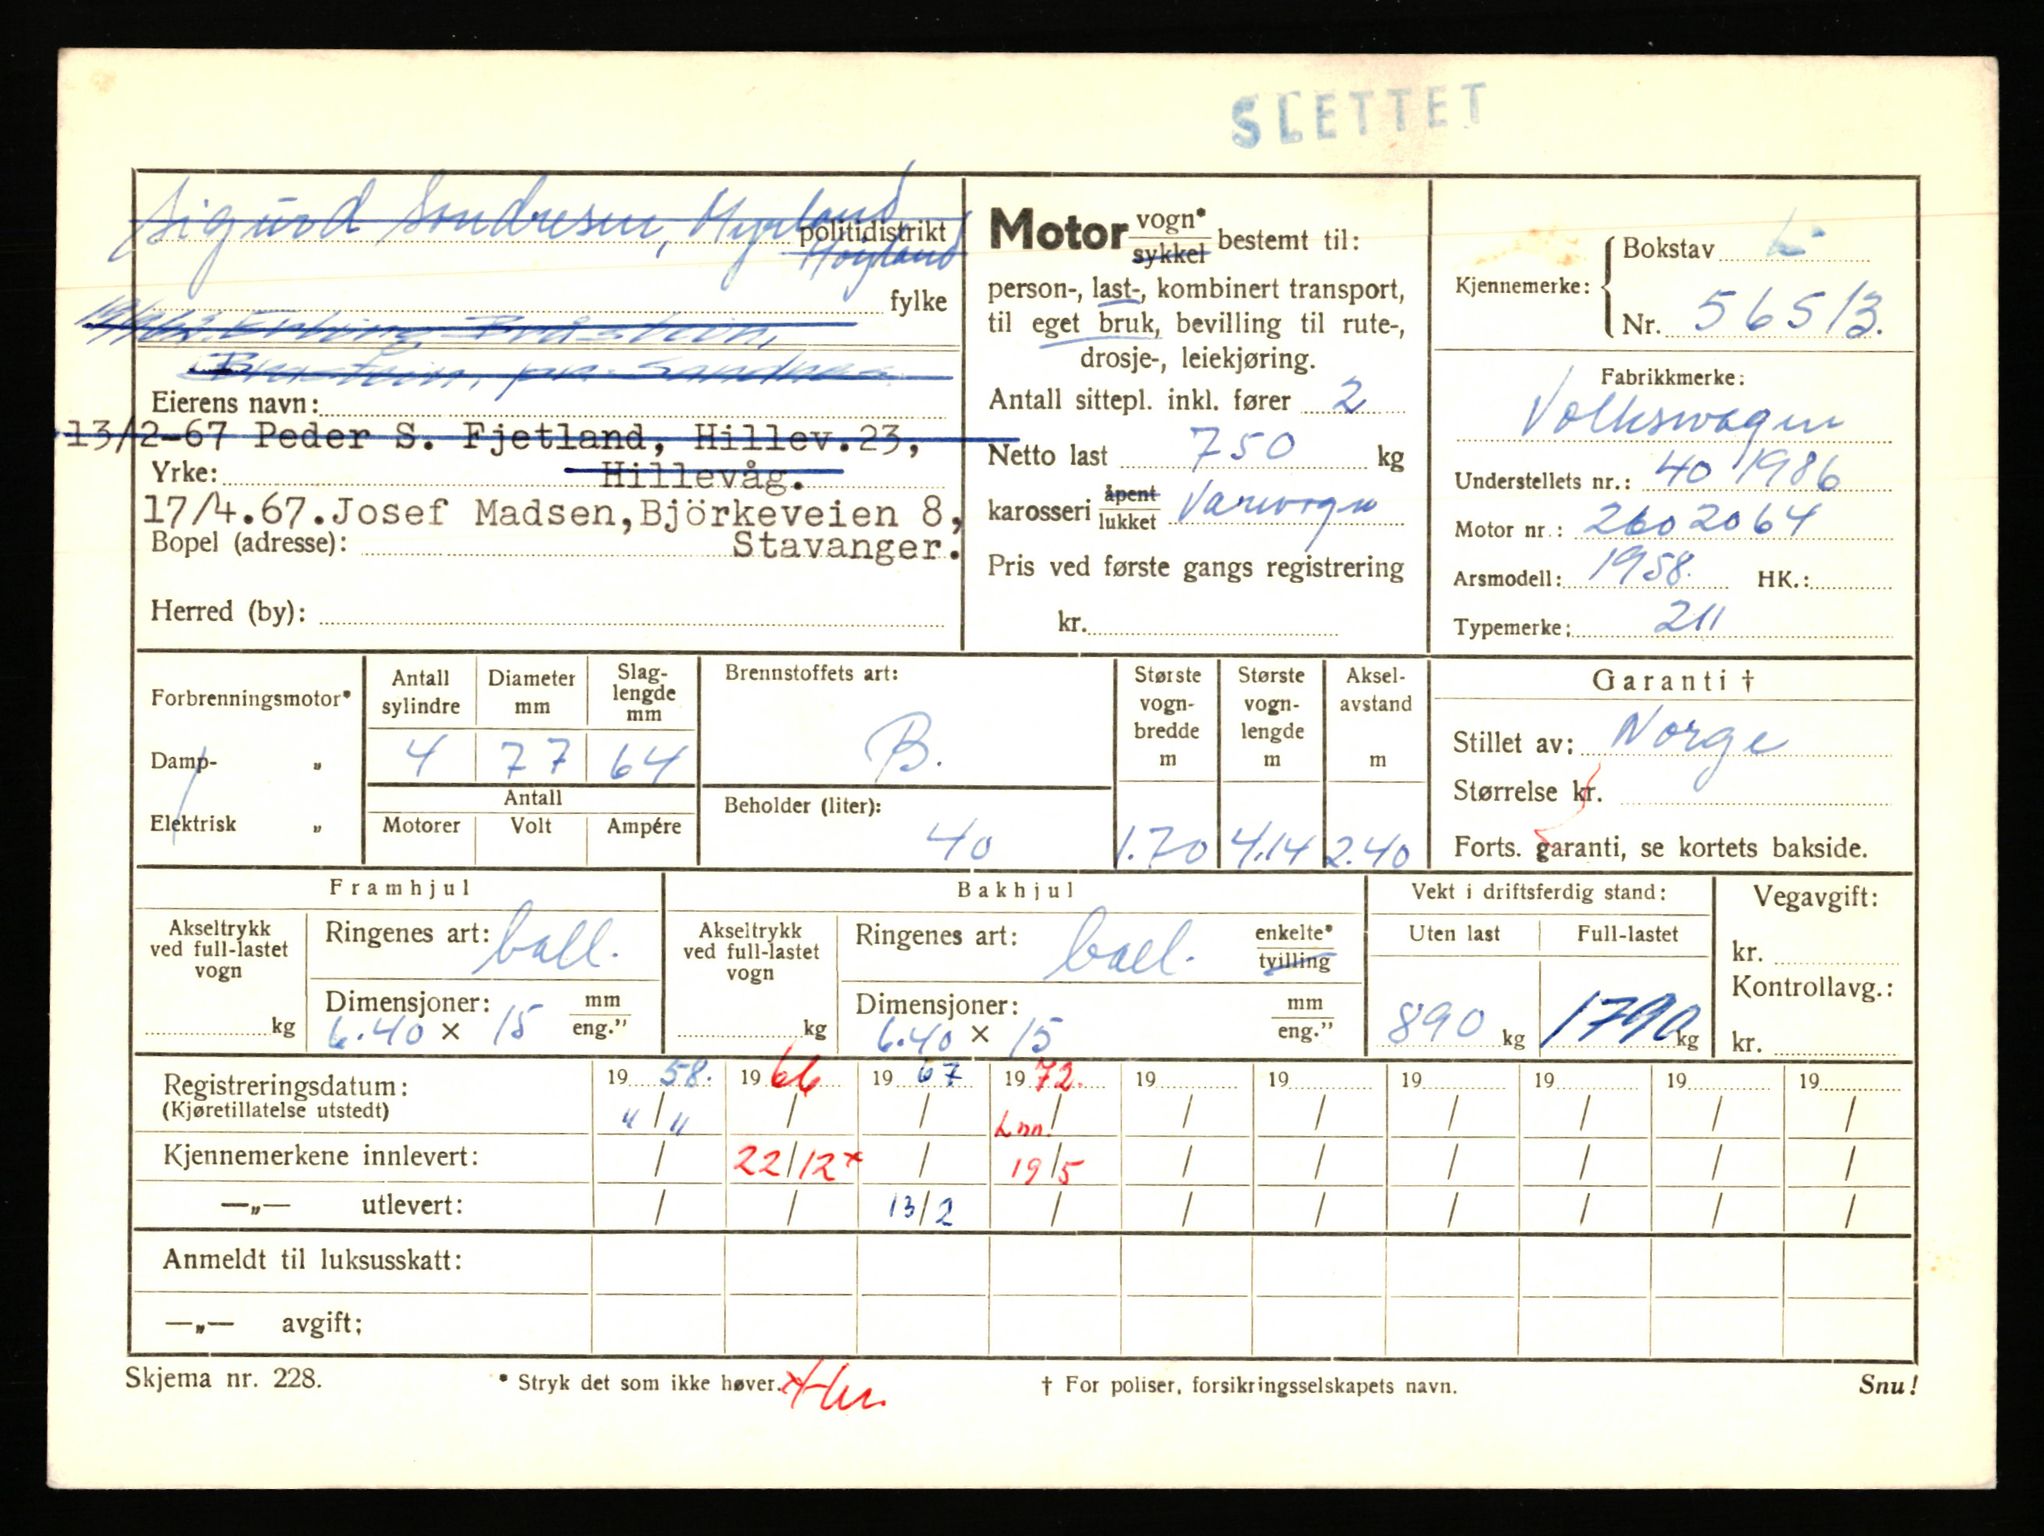 SLETTET
Sigurd Sondresen, Myrland
politidistrikt
Høyland
fylke
Erling Bråstein,
Bråstein, pr. Sandnes
Eierens navn:
13/2-67 Peder S. Fjetland, Hillev.23,
Yrke: Hillevåg.
17/4.67.Josef Madsen,Björkeveien 8,
Bopel (adresse): Stavanger.
Herred (by):
Motor vogn* sykkel bestemt til:
person-, last-, kombinert transport,
til eget bruk, bevilling til rute-,
drosje-, leiekjøring.
Antall sittepl. inkl. fører 2
Netto last 750 kg
karosseri åpent lukket Varevogn
Pris ved første gangs registrering
kr.
Kjennemerke: Bokstav L
Nr. 56513.
Fabrikkmerke:
Volkswagen
Understellets nr.: 401986
Motor nr.: 2602064
Arsmodell: 1958. HK.:
Typemerke: 211
Forbrenningsmotor*
Damp- „
Elektrisk „
Antall sylindre
Diameter mm
Slag-lengde mm
4 77 64
Antall
Motorer Volt Ampére
Brennstoffets art:
B.
Beholder (liter):
40
Største vogn-bredde m
1.70
Største vogn-lengde m
4.14
Aksel-avstand m
2.40
Garanti †
Stillet av: Norge
Størrelse kr.
Forts. garanti, se kortets bakside.
Framhjul
Akseltrykk ved full-lastet vogn
kg
Ringenes art: ball.
Dimensjoner: mm
6.40 × 15 eng."
Bakhjul
Akseltrykk ved full-lastet vogn
kg
Ringenes art: ball. enkelte* tvilling
Dimensjoner: mm
6.40 × 15 eng."
Vekt i driftsferdig stand:
Uten last Full-lastet
890 kg 1790 kg
Vegavgift:
kr.
Kontrollavg.:
kr.
Registreringsdatum: 19 58. 19 66 19 67 19 72. 19 19 19 19 19 19
(Kjøretillatelse utstedt) " / " / / / / / / / / /
Kjennemerkene innlevert: / 22/12* / 19/5 / / / / / /
—„— utlevert: / / 13/2 / / / / / / /
Anmeldt til luksusskatt:
—„— avgift;
Skjema nr. 228.
* Stryk det som ikke høver.
† For poliser, forsikringsselskapets navn.
Snu!